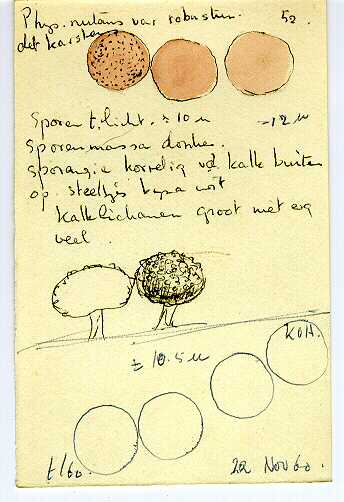 Phys. nutans var robustum.
52.
det Karstens
Sporen t, licht. ± 10 µ -12 µ
Sporenmassa donker.
Sporangie korrelig vd kalk buiten
op. steeltjes bijna wit
Kalklichamen groot met erg
veel.
KOH.
± 10.5 µ
t/60.
22 Nov 60.